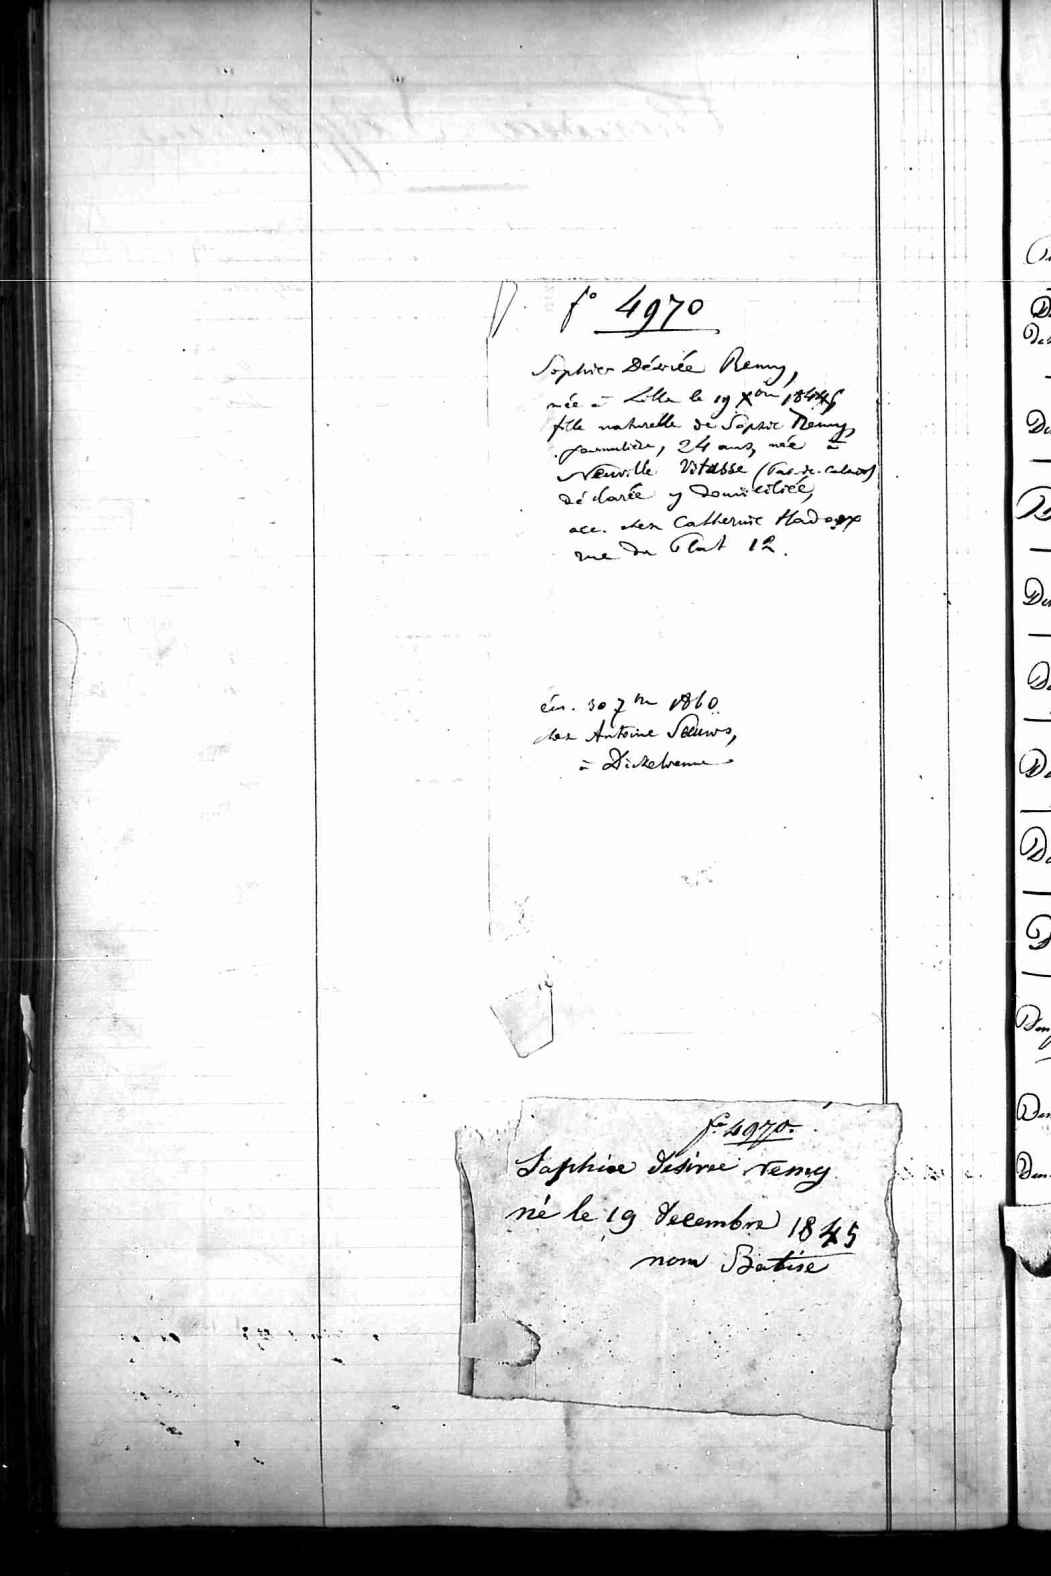 fo 4970
Sophie Désirée Remy,
née à Lille le 19 Xbre 1845
fille naturelle de Sophie Remy,
journalière, 24 ans, née à
Neuville Vitasse (Pas-de-Calais)
déclarée y domiciliée,
acc. chez Catherine
rue du Plat 12.
ém. 30 7bre 1860
chez Antoine
à
fo 4970.
Sophie desiree remy
né le 19 decembre 1845
nom Batise